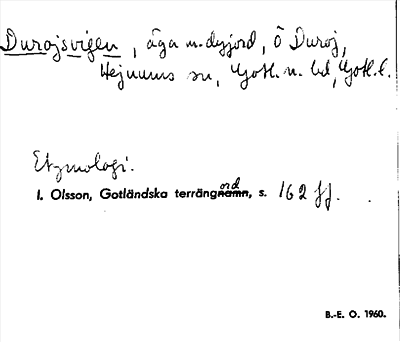 Durojsvigen, äga m. dyjord, Ö Duroj,
Hejnums sn, Gotl. n. hd, Gotl. l.
Etymologi.
I. Olsson, Gotländska terrängnamn, ord s. 162 ff.
B.-E. O. 1960.